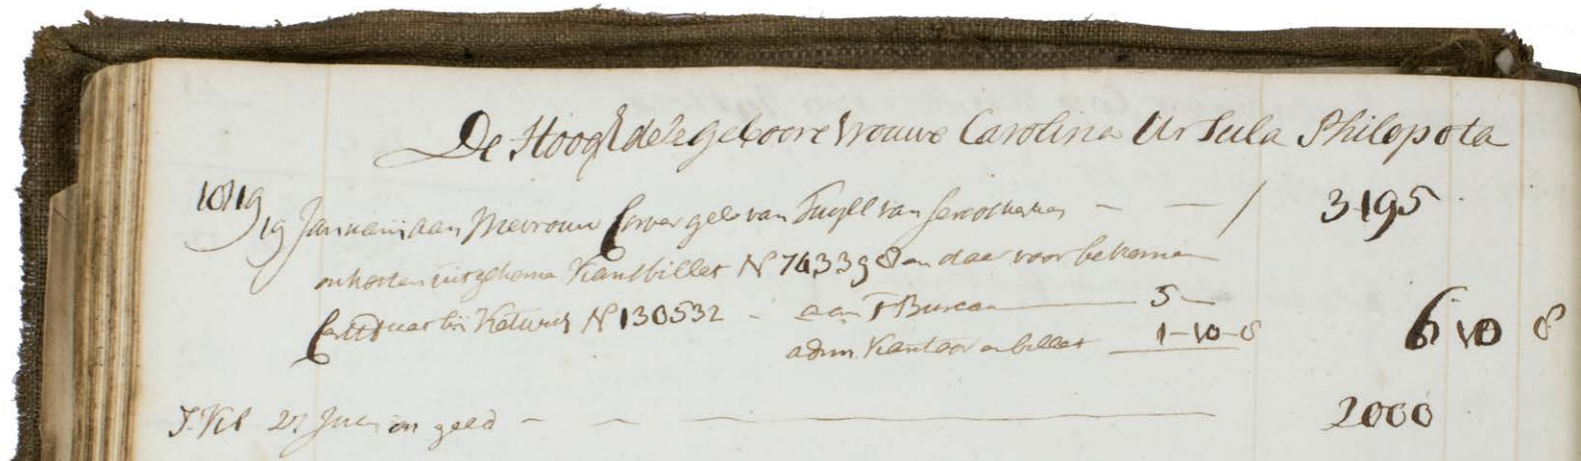 De Hooghdelegeboore Vrouwe Carolina Ursula Philopota
1819
19 Januarij aan Mevrouw van Tuyll van Serooskerken - - / 3195
onkosten uitgekome Kansbillet N 74339 8 en daar voor bekomen
N 130532 - aan T Bureau 5 -
adm. Kantoor en billet 1-10-8 6 10 8
27 Juni in geld - - 2000